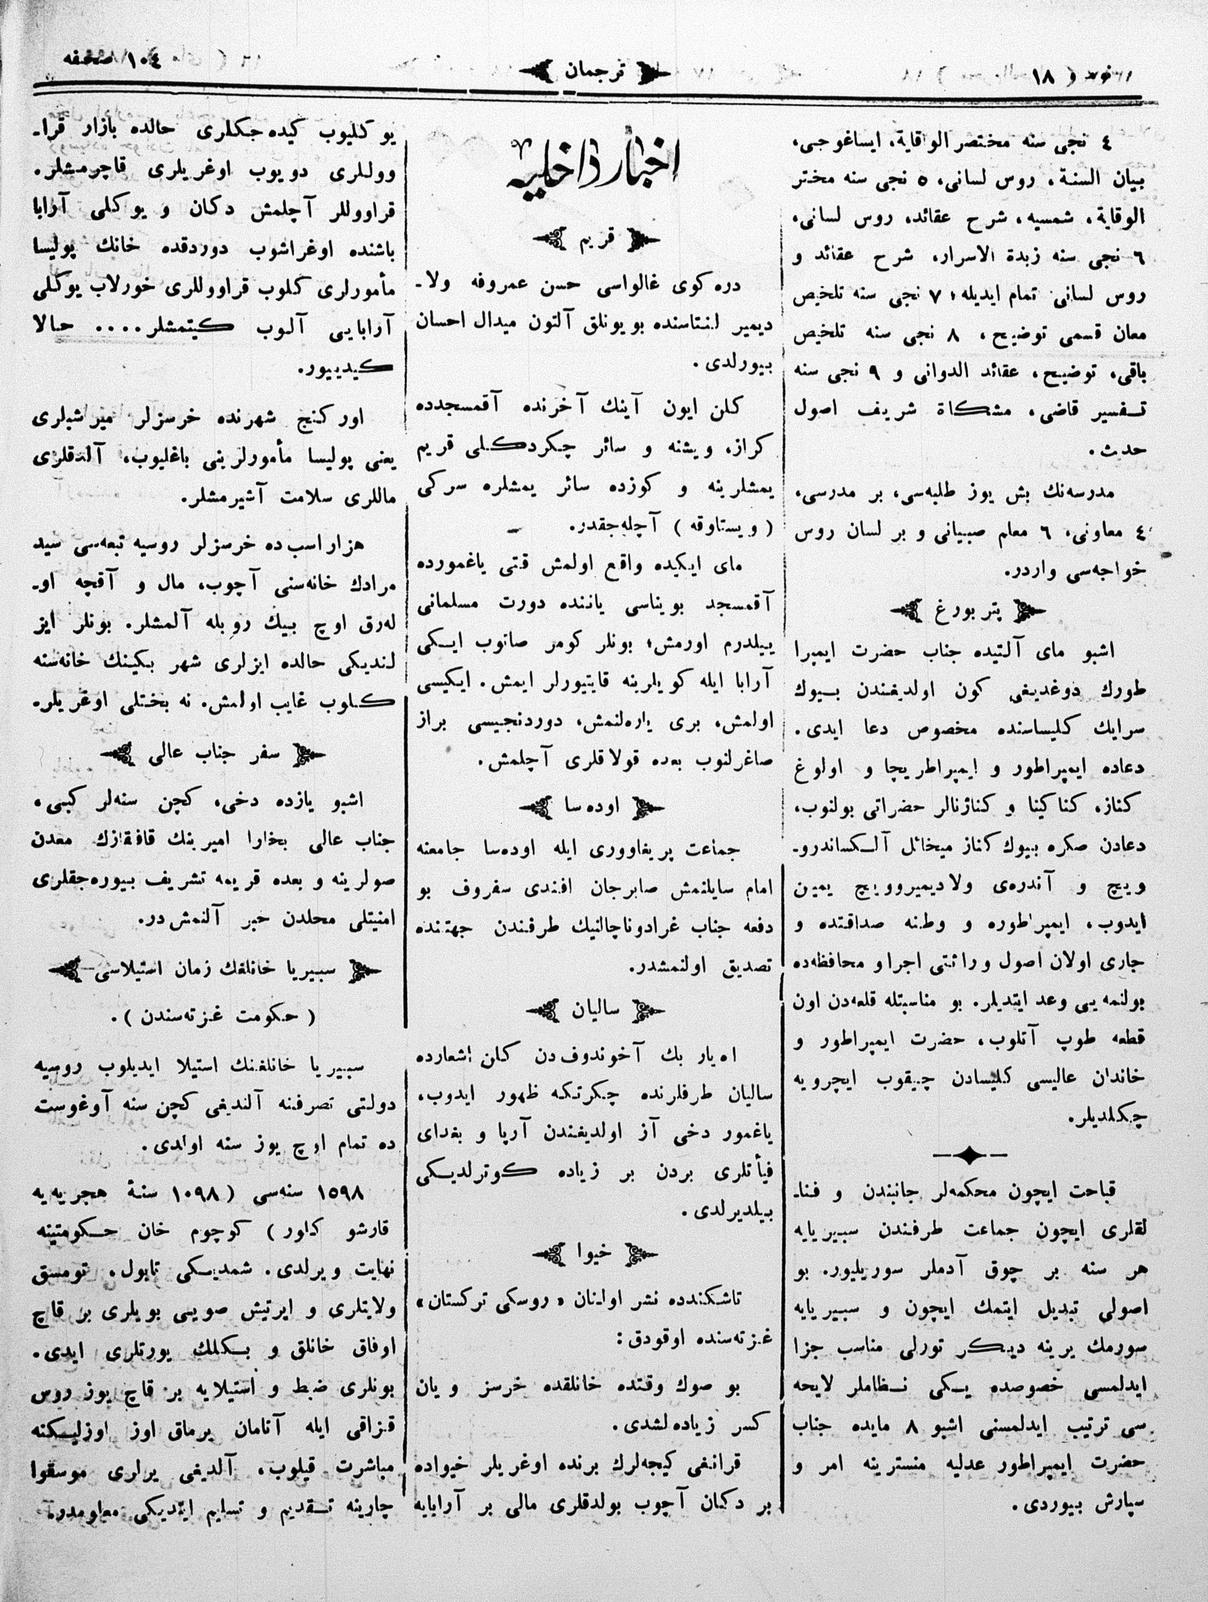 نومرو ( ١٨
ترجمان
١٠٤ صحفه
٤ نجی سنه مختصر الوقایة، ایساغوجی،
بیان السنة، روس لسانی، ٥ نجی سنه مختر
الوقایة، شمسیه، شرح عقائد، روس لسانی،
٦ نجی سنه زبدة الاسرار، شرح عقائد و
روس لسانی تمام ایدیله؛ ٧ نجی سنه تلخیص
معان قسمی توضیح، ٨ نجی سنه تلخیص
باقی، توضیح، عقائد الدوانی و ٩ نجی سنه
تفسیر قاضی، مشکاة شریف اصول
حدث.
مدرسه‌نك بش یوز طلبه‌سی، بر مدرسی،
٤ معاونی، ٦ معلم صبیانی و بر لسان روس
خواجه‌سی واردر.
پتربورغ
اشبو مای آلتیده جناب حضرت ایمپرا
طورك دوغدیغی کون اولدیغندن بیوك
سرایك کلیساسنده مخصوص دعا ایدی.
دعاده ایمپراطور و ایمپراطریچا و اولوغ
کناز، کناکینا و کناژنالر حضراتی بولنوب،
دعادن صکره بیوك کناز میخائل آلکساندرو-
ویچ و آندره‌ی ولادیمیروویچ یمین
ایدوب، ایمپراطوره و وطنه صداقتده و
جاری اولان اصول وراثتی اجرا و محافظه‌ده
بولنمه یی وعد ایتدیلر. بو مناسبتله قلعه‌دن اون
قطعه طوپ آتلوب، حضرت ایمپراطور و
خاندان عالیسی کلیسادن چیقوب ایچرویه
چکلدیلر.
قباحت ایچون محکمه‌لر جانبندن و فنا-
لقلری ایچون جماعت طرفندن سبیریایه
هر سنه بر چوق آدملر سوریلیور. بو
اصولی تبدیل ایتمك ایچون و سبیریایه
سورمك یرینه دیکر تورلی مناسب جزا
ایدلمسی خصوصده یکی نظاملر لایحه
سی ترتیب ایدلمسنی اشبو ٨ مایده جناب
حضرت ایمپراطور عدلیه منسترینه امر و
سپارش بیوردی.
اخبار داخلیه
قریم
دره کوی غالواسی حسن عمروفه ولا-
دیمیر لنتاسنده بویونلق آلتون میدال احسان
بیورلدی.
کلن ایون آینك آخرنده آقمسجدده
کراز، ویشنه و سائر چکردکلی قریم
یمشلرینه و کوزده سائر یمشلره سرکی
( ویستاوقه ) آچله‌جقدر.
مای ایکیده واقع اولمش قتی یاغمورده
آقمسجد بویناسی یاننده دورت مسلمانی
ییلدرم اورمش؛ بونلر کومر صانوب ایکی
آرابا ایله کویلرینه قایتیورلر ایمش. ایکیسی
اولمش، بری یاره‌لنمش، دوردنجیسی براز
صاغرلنوب بعده قولاقلری آچلمش.
اوده‌سا
جماعت پریغاووری ایله اوده‌سا جامعنه
امام سایلنمش صابرجان افندی سفروف بو
دفعه جناب غرادوناچالنیك طرفندن جهتنده
تصدیق اولنمشدر.
سالیان
اه‌یار بك آخوندوف‌دن کلن اشعارده
سالیان طرفلرنده چکرتکه ظهور ایدوب،
یاغمور دخی آز اولدیغندن آرپا و بغدای
فیأتلری بردن بر زیاده کوترلدیکی
بیلدیرلدی.
خیوا
تاشکندده نشر اولنان «روسکی ترکستان»
غزته‌سنده اوقودق:
بو صوك وقتده خانلقده خرسز و یان
کسر زیاده‌لشدی.
قرانغی کیجه‌لرك برنده اوغریلر خیواده
بر دکان آچوب بولدقلری مالی بر آرابایه
یوکلیوب کیده‌جکلری حالده بازار قرا-
ووللری دویوب اوغریلری قاچرمشلر.
قراووللر آچلمش دکان و یوکلی آرابا
باشنده اوغراشوب دوردقده خانك پولیسا
مأمورلری کلوب قراووللری خورلاب یوکلی
آرابایی آلوب کیتمشلر.... حالا
کیدییور.
اورکنج شهرنده خرسزلر میرشیلری
یعنی پولیسا مأمورلرینی باغلیوب، آلدقلری
ماللری سلامت آشیرمشلر.
هزاراسب ده خرسزلر روسیه تبعه‌سی سید
مرادك خانه‌سنی آچوب، مال و آقچه او-
له‌رق اوچ بیك روبله آلمشلر. بونلر ایز
لندیکی حالده ایزلری شهر بکینك خانه‌سنه
کلوب غایب اولمش. نه بختلی اوغریلر.
سفر جناب عالی
اشبو یازده دخی، کچن سنه‌لر کبی،
جناب عالی بخارا امیرینك قافقازك معدن
صولرینه و بعده قریمه تشریف بیوره‌جقلری
امنیتلی محلدن خبر آلنمش‌در.
سبیریا خانلقك زمان استیلاسی
( حکومت غزته‌سندن ).
سبیریا خانلغنك استیلا ایدیلوب روسیه
دولتی تصرفنه آلندیغی کچن سنه آوغوست
ده تمام اوچ یوز سنه اولدی.
١٥٩٨ سنه‌سی (١٠٩٨ سنۀ هجریه‌یه
قارشو کلور) کوچوم خان حکومتینه
نهایت ویرلدی. شمدیکی تابول، تومسق
ولایتلری و ایرتیش صویی بویلری بر قاچ
اوفاق خانلق و بکلك یورتلری ایدی.
بونلری ضبط و استیلایه بر قاچ یوز روس
قزاقی ایله آتامان یرماق اوز اوزلیکنه
مباشرت قیلوب، آلدیغی یرلری موسقوا
چارینه تقدیم و تسلیم ایتدیکی معلومدر.